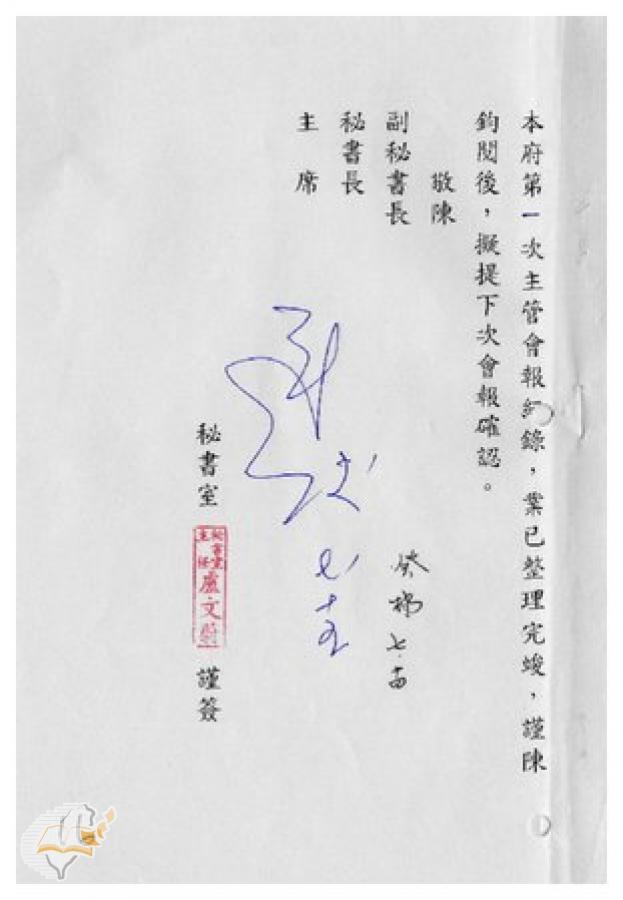 本府第一次主管會報紀錄，業已整理完竣，謹陳
鈞閱後，擬提下次會報確認。
敬陳
副秘書長
秘書長
主席
七．
七
十五
秘書室
秘書室
主任
盧文蔚
謹簽